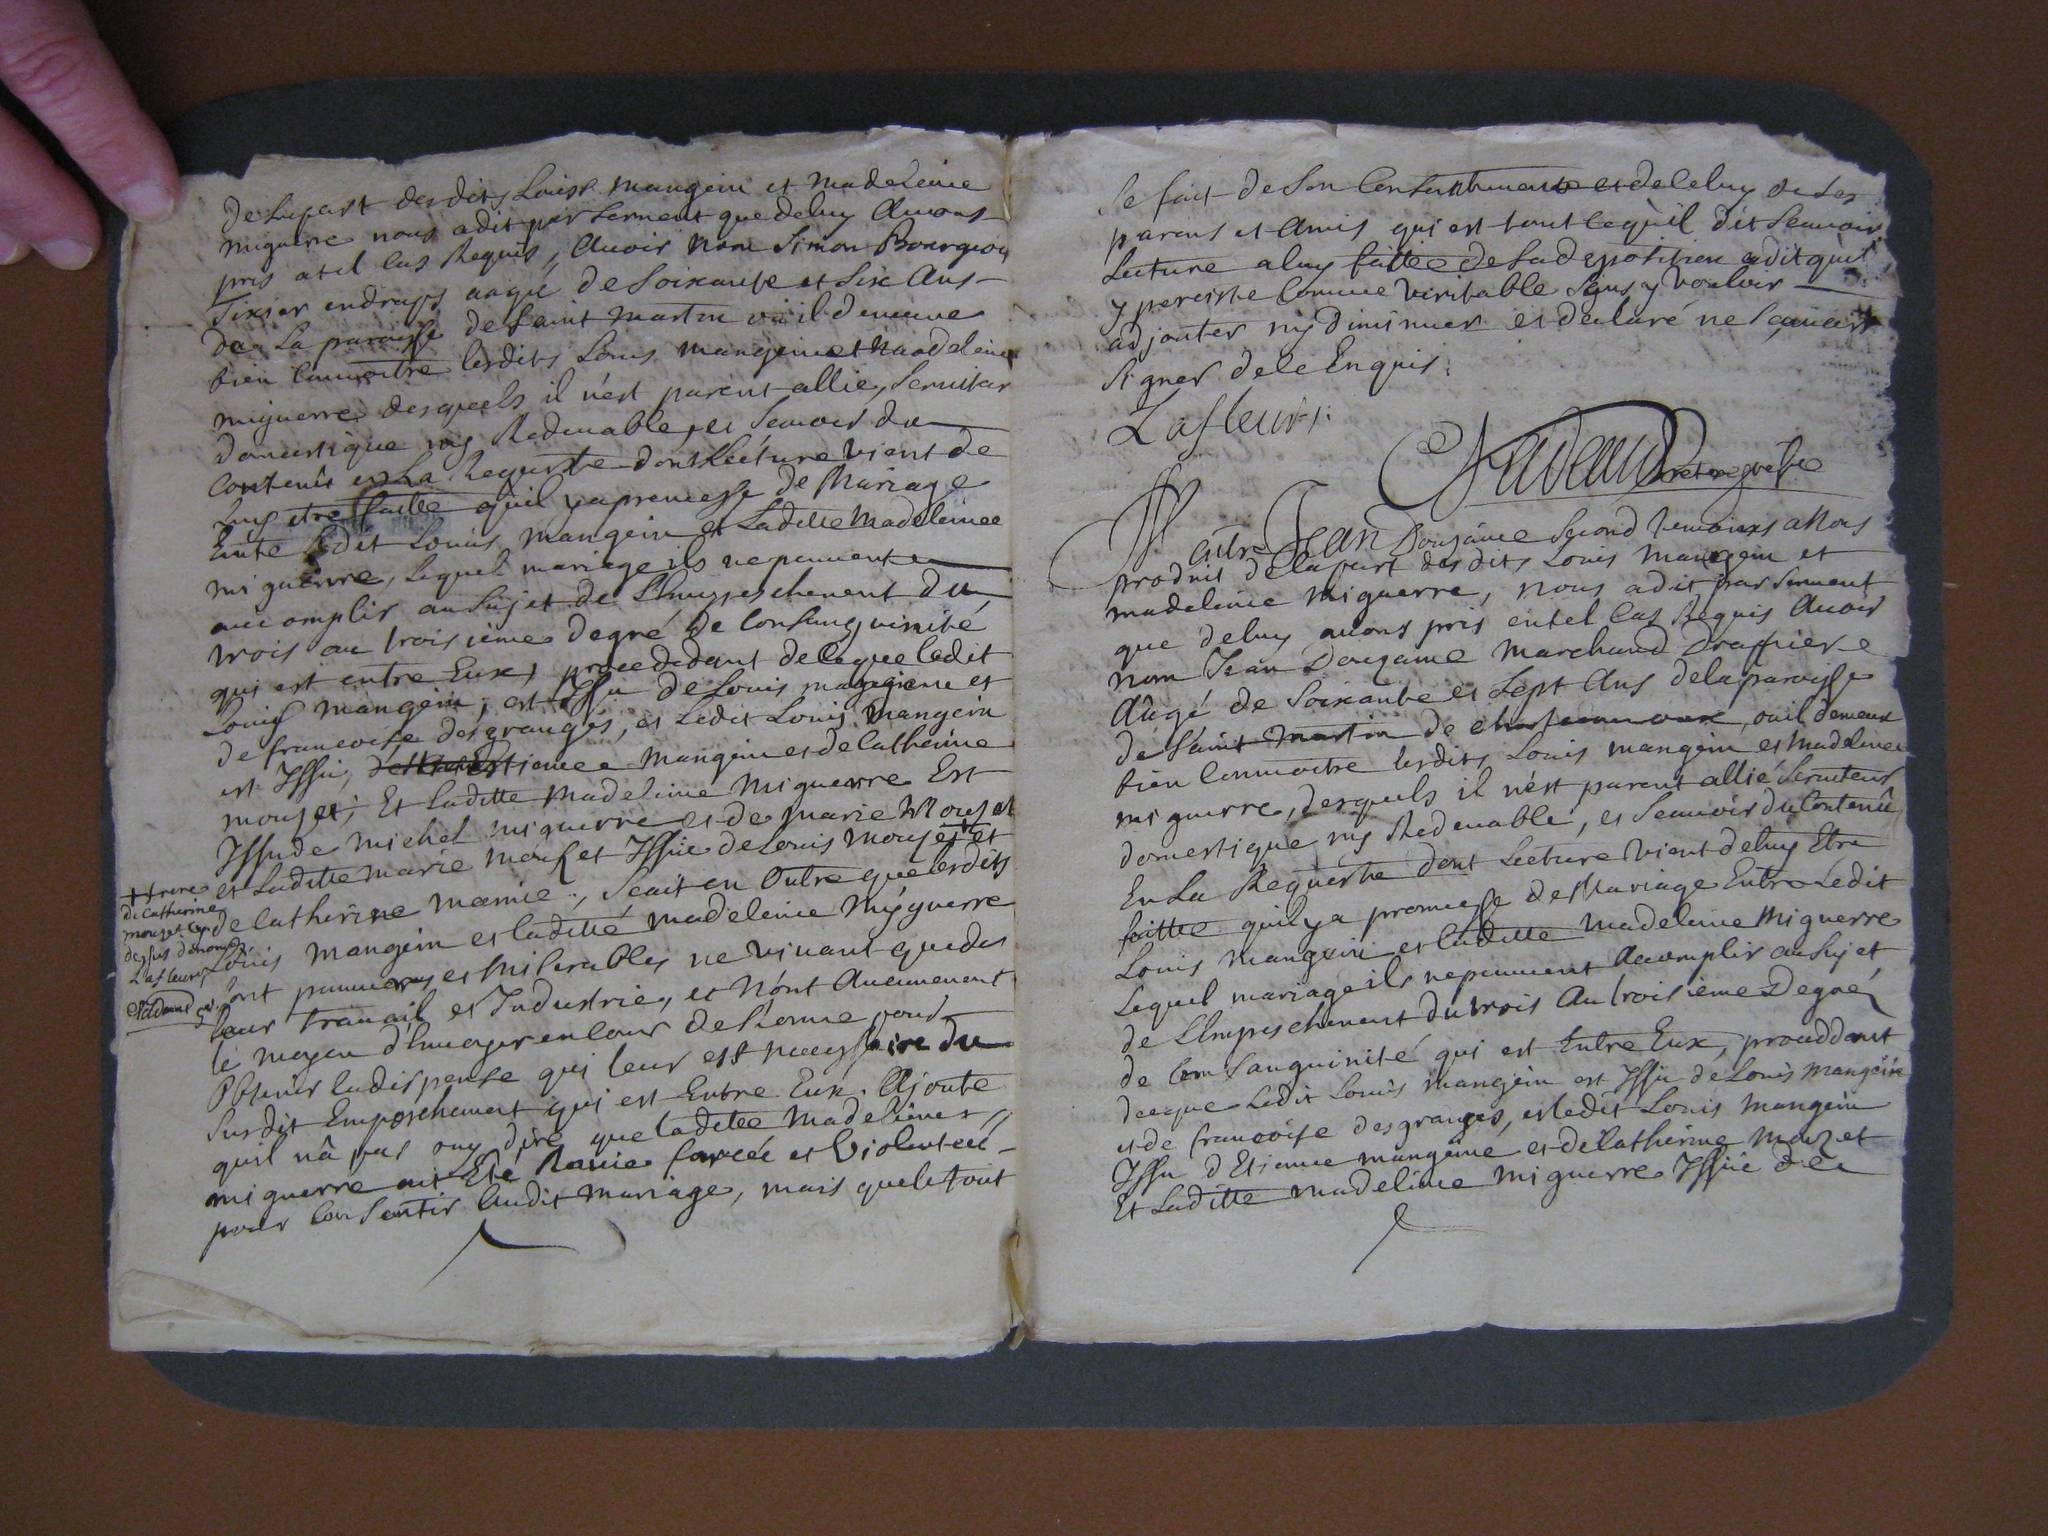 De la part desdits Louis mangein et madeleine
miguere nous a dit par serment que de luy Avons
pris a tel cas Requis, avoir nom Simon Bourgeois
Tixier en draps aagé de Soixante et Six Ans
de La paroisse de Saint martin où il demeure
bien connoitre lesdits Louis mangein et Madeleine
miguerre desquels il n'est parent allié, Seruiteur
domestique ny Redeuable, et Scauoir du
contenû en La Requeste dont Lécture vient de
Luy etre faitte qu'il y a promesse de Mariage
Entre Ledit Louis mangein et Laditte Madeleinee
miguerre, Lequel mariage ils ne peuuent
accomplir au Sujet de L'Empeschement du
trois au troisième degré de Consanguinité
qui est entre Eux, proceddant de ce que ledit
Louis mangein, est Issu de Louis mangein et
de francoise desgranges, et Ledit Louis Mangein
est Issu, d'Estienne Mangein et de Catherine
mouzet; Et Laditte Madeleine Miguerre Est
Issu de Michel miguerre et de marie Mouzet
et Laditte marie mouzet Issüe de Louis mouzet ++ et
de Catherine mamie., Scait en Outre que lesdits
Louis mangein et laditté madeleine Myguerre
Sont pauures et Miserables ne viuant que de
leur trauail et Industrie, et N'ont Aucunement
le moyen d'Enuoyer en Cour de Rome pour
Obtenir la dispense qui leur est necessaire du
Susdit Empeschement qui est Entre Eux. Ajoute
qu'il n'â pas ouy dire que laditte Madeleine
miguerre ait Eté Rauie forcéé et Violentéé
pour Consentir Audit mariage, mais que le tout
++ frere
de Catherine
mouzet cy
dessus denommée
Lafleur
Nadaud
Se fait de Son Consentement et de Celuy de Ses
parens et Amis qui est tout ce qu'il dit Scauoir
Lecture a luy faitte de Sa deposition a dit qu'il
y persiste Comme Veritable Sans y vouloir
adjouter ny Diminuer et declaré ne Scauoir
Signer de ce Enquis.
Lafleur
Nadaud
Maitre Jean Douzâme Second temoins a Nous
produit de la part desdits Louis Mangein et
madeleine Miguerre, nous a dit par Serment
que de luy auons pris en tel Cas Requis Auoir
nom Jean Douzame Marchand Drappier
Aâgé de Soixante et Sept Ans de la paroisse
de Saint Martin de chasteauroux, ou il demeure
bien Connoitre lesdits Louis mangein et Madeleine
miguerre, desquels il n'est parent allié Seruiteur
domestique ny Redeuable, et Scauoir du Contenû
En La Requeste dont Lecture vient de luy Etre
faitte qu'il y a promesse de Mariage Entre Ledit
Louis Mangein et Laditte Madeleine Miguerre
Lequel mariage ils ne peuuent Acomplir au Sujet
de L'Empeschement du trois Au troisieme Degré,
de Consanguinité qui est Entre Eux, proceddant
de ce que Ledit Louis mangein est Issu de Louis Mangein
et de francoise desgranges, et ledit Louis Mangein
Issu d'Etienne mangeine et de Catherine Mouzet
Et Laditte Madeleine Miguerre Issüe de